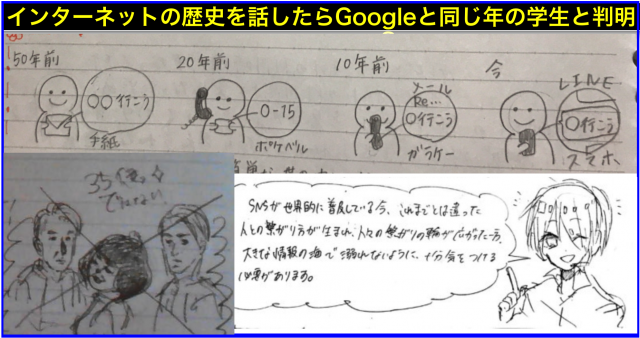 インターネットの歴史を話したらGoogleと同じ年の学生と判明
50年前
20年前
10年前
今
〇〇行こう
手紙
0-15
ポケベル
メール
Re...
〇行こう
ガラケー
LINE
〇行こう
スマホ
35億
SNSが世界的に普及している今、これまでとは違った
人との繋がり方が生まれ、人々の繋がりの輪が広がった一方、
大きな情報の海で溺れないように、十分気をつける
必要があります。